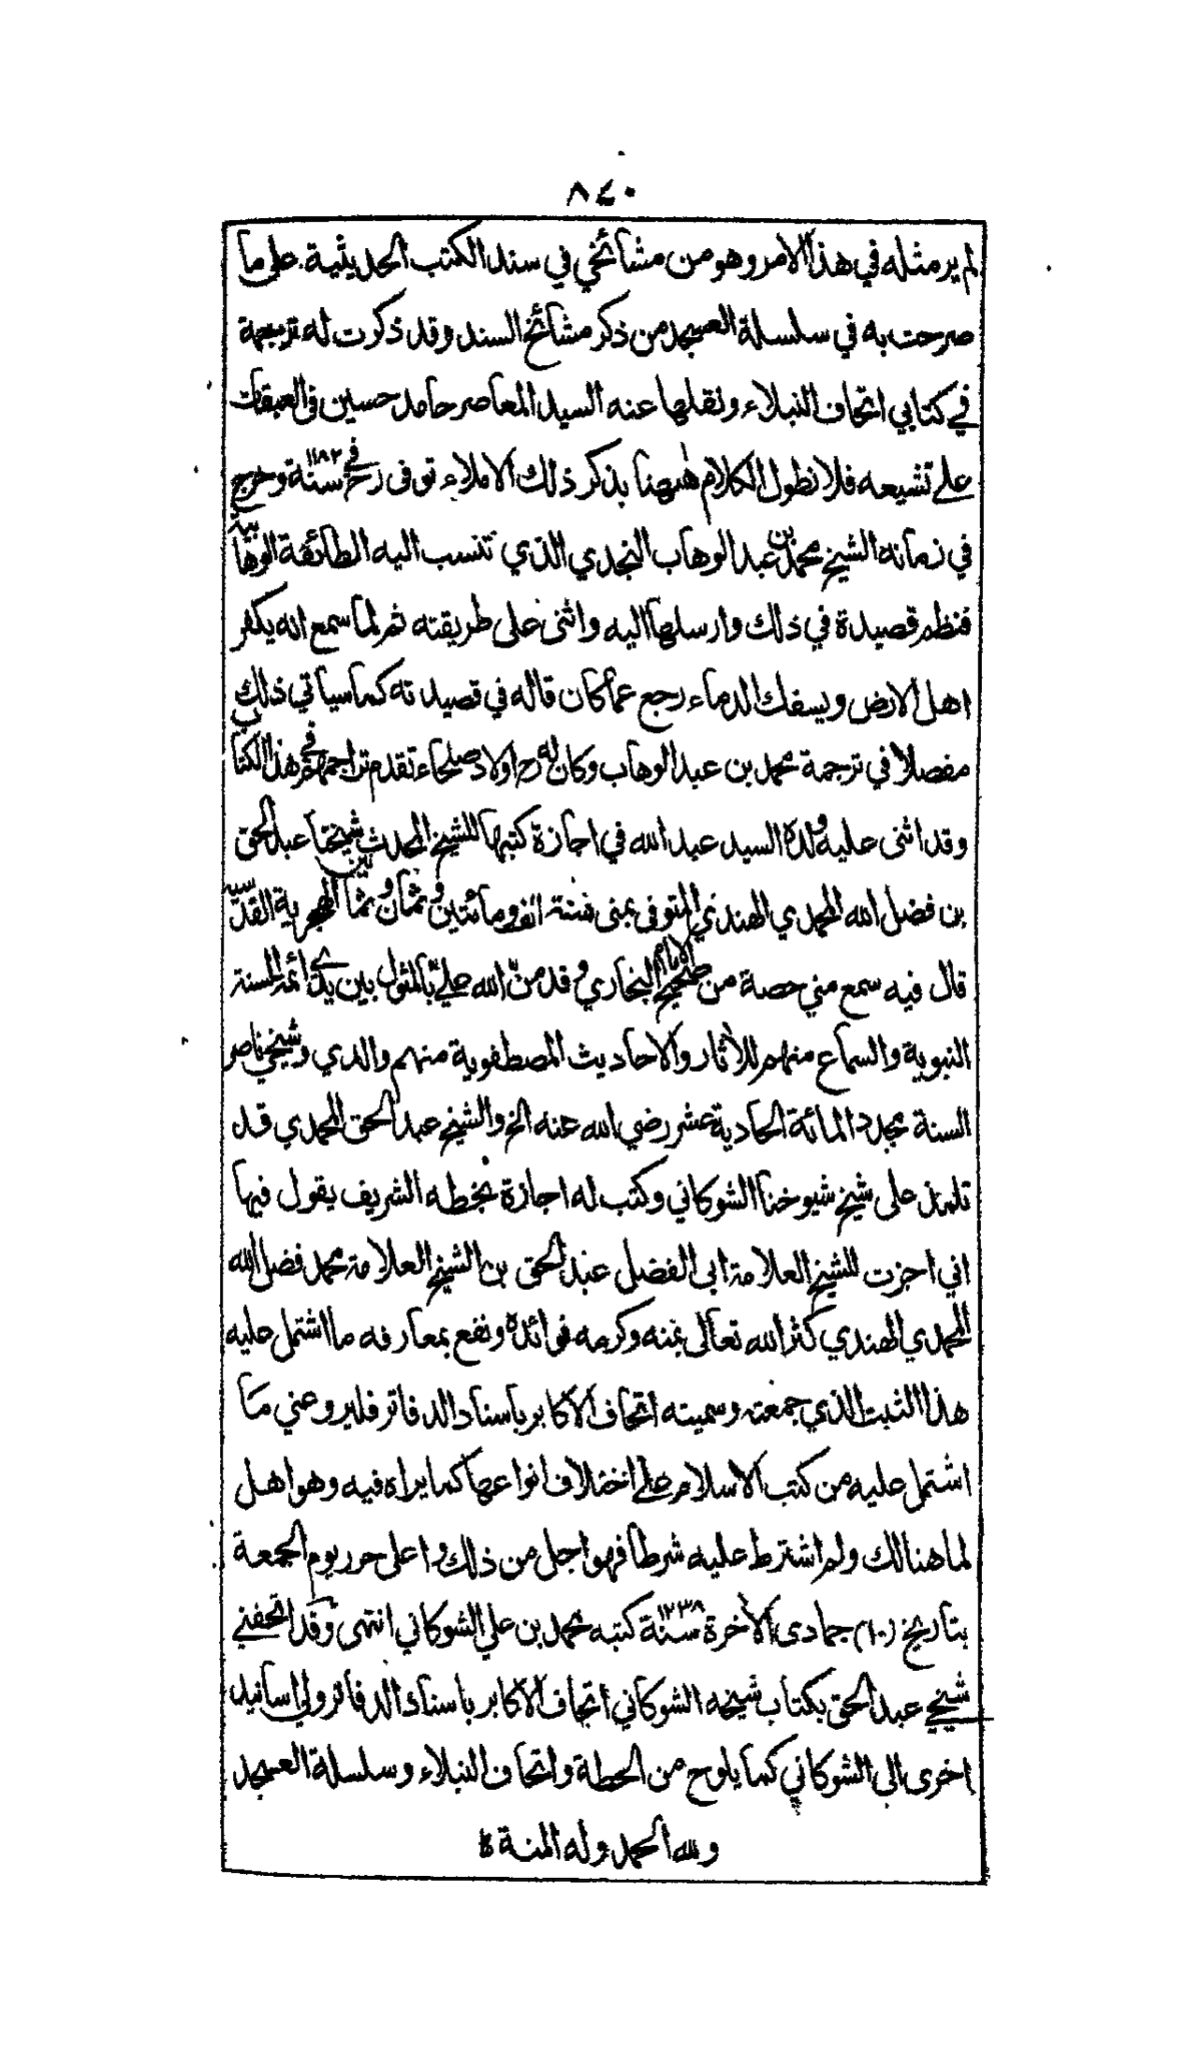 ٨٤٠
لم ير مثله في هذا الامر وهو من مشائخي في سند الكتب الحديثية على ما
صرحت به في سلسلة العسجد من ذكر مشائخ السند وقد ذكرت له ترجمة
في كتابي اتحاف النبلاء ونقلها عنه السيد المعاصر حامد حسين في العبقات
على تشيعه فلا نطول الكلام ههنا بذكر ذلك الاملاء توفى رح في سنة ١١٨٢ وخرج
في زمانه الشيخ محمد بن عبد الوهاب النجدي الذي تنسب اليه الطائفة الوهابية
فنظم قصيدة في ذلك وارسلها اليه واثنى على طريقته ثم لما سمع انه يكفر
اهل الارض ويسفك الدماء رجع عما كان قاله في قصيدته كما سياتي ذلك
مفصلا في ترجمة محمد بن عبد الوهاب وكان له رح اولاد صلحاء تقدم تراجمهم في هذا الكتاب
وقد اثنى عليه ولده السيد عبد الله في اجازة كتبها للشيخ المحدث شيخنا عبد الحق
بن فضل الله المحمدي الهندي المتوفى بمنى سنة الف ومائتين وثمان وثمانين الهجرية القدسية
قال فيه سمع مني حصة من صحيح الامام البخاري وقد من الله علي بالمثول بين يدي ائمة السنة
النبوية والسماع منهم للآثار والاحاديث المصطفوية منهم والدي وشيخي ناصر
السنة مجدد المائة الحادية عشر رضي الله عنه الخ والشيخ عبد الحق المحمدي قد
تلمذ على شيخ شيوخنا الشوكاني وكتب له اجازة بخطه الشريف يقول فيها
اني اجزت للشيخ العلامة ابي الفضل عبد الحق بن الشيخ العلامة محمد فضل الله
المحمدي الهندي كثر الله تعالى بمنه وكرمه فوائده ونفع بمعارفه ما اشتمل عليه
هذا الثبت الذي جمعته وسميته اتحاف الاكابر باسناد الدفاتر فليرو عني ما
اشتمل عليه من كتب الاسلام على اختلاف انواعها كما يراه فيه وهو اهل
لما هنالك ولم اشترط عليه شرطا فهو اجل من ذلك واعلى حرر يوم الجمعة
بتاريخ (١٠) جمادى الآخرة سنة ١٢٣٨ كتبه محمد بن علي الشوكاني انتهى وقد اتحفني
شيخي عبد الحق بكتاب شيخه الشوكاني اتحاف الاكابر باسناد الدفاتر ولي اسانيد
اخرى الى الشوكاني كما يلوح من الحطة واتحاف النبلاء وسلسلة العسجد
ولله الحمد وله المنة